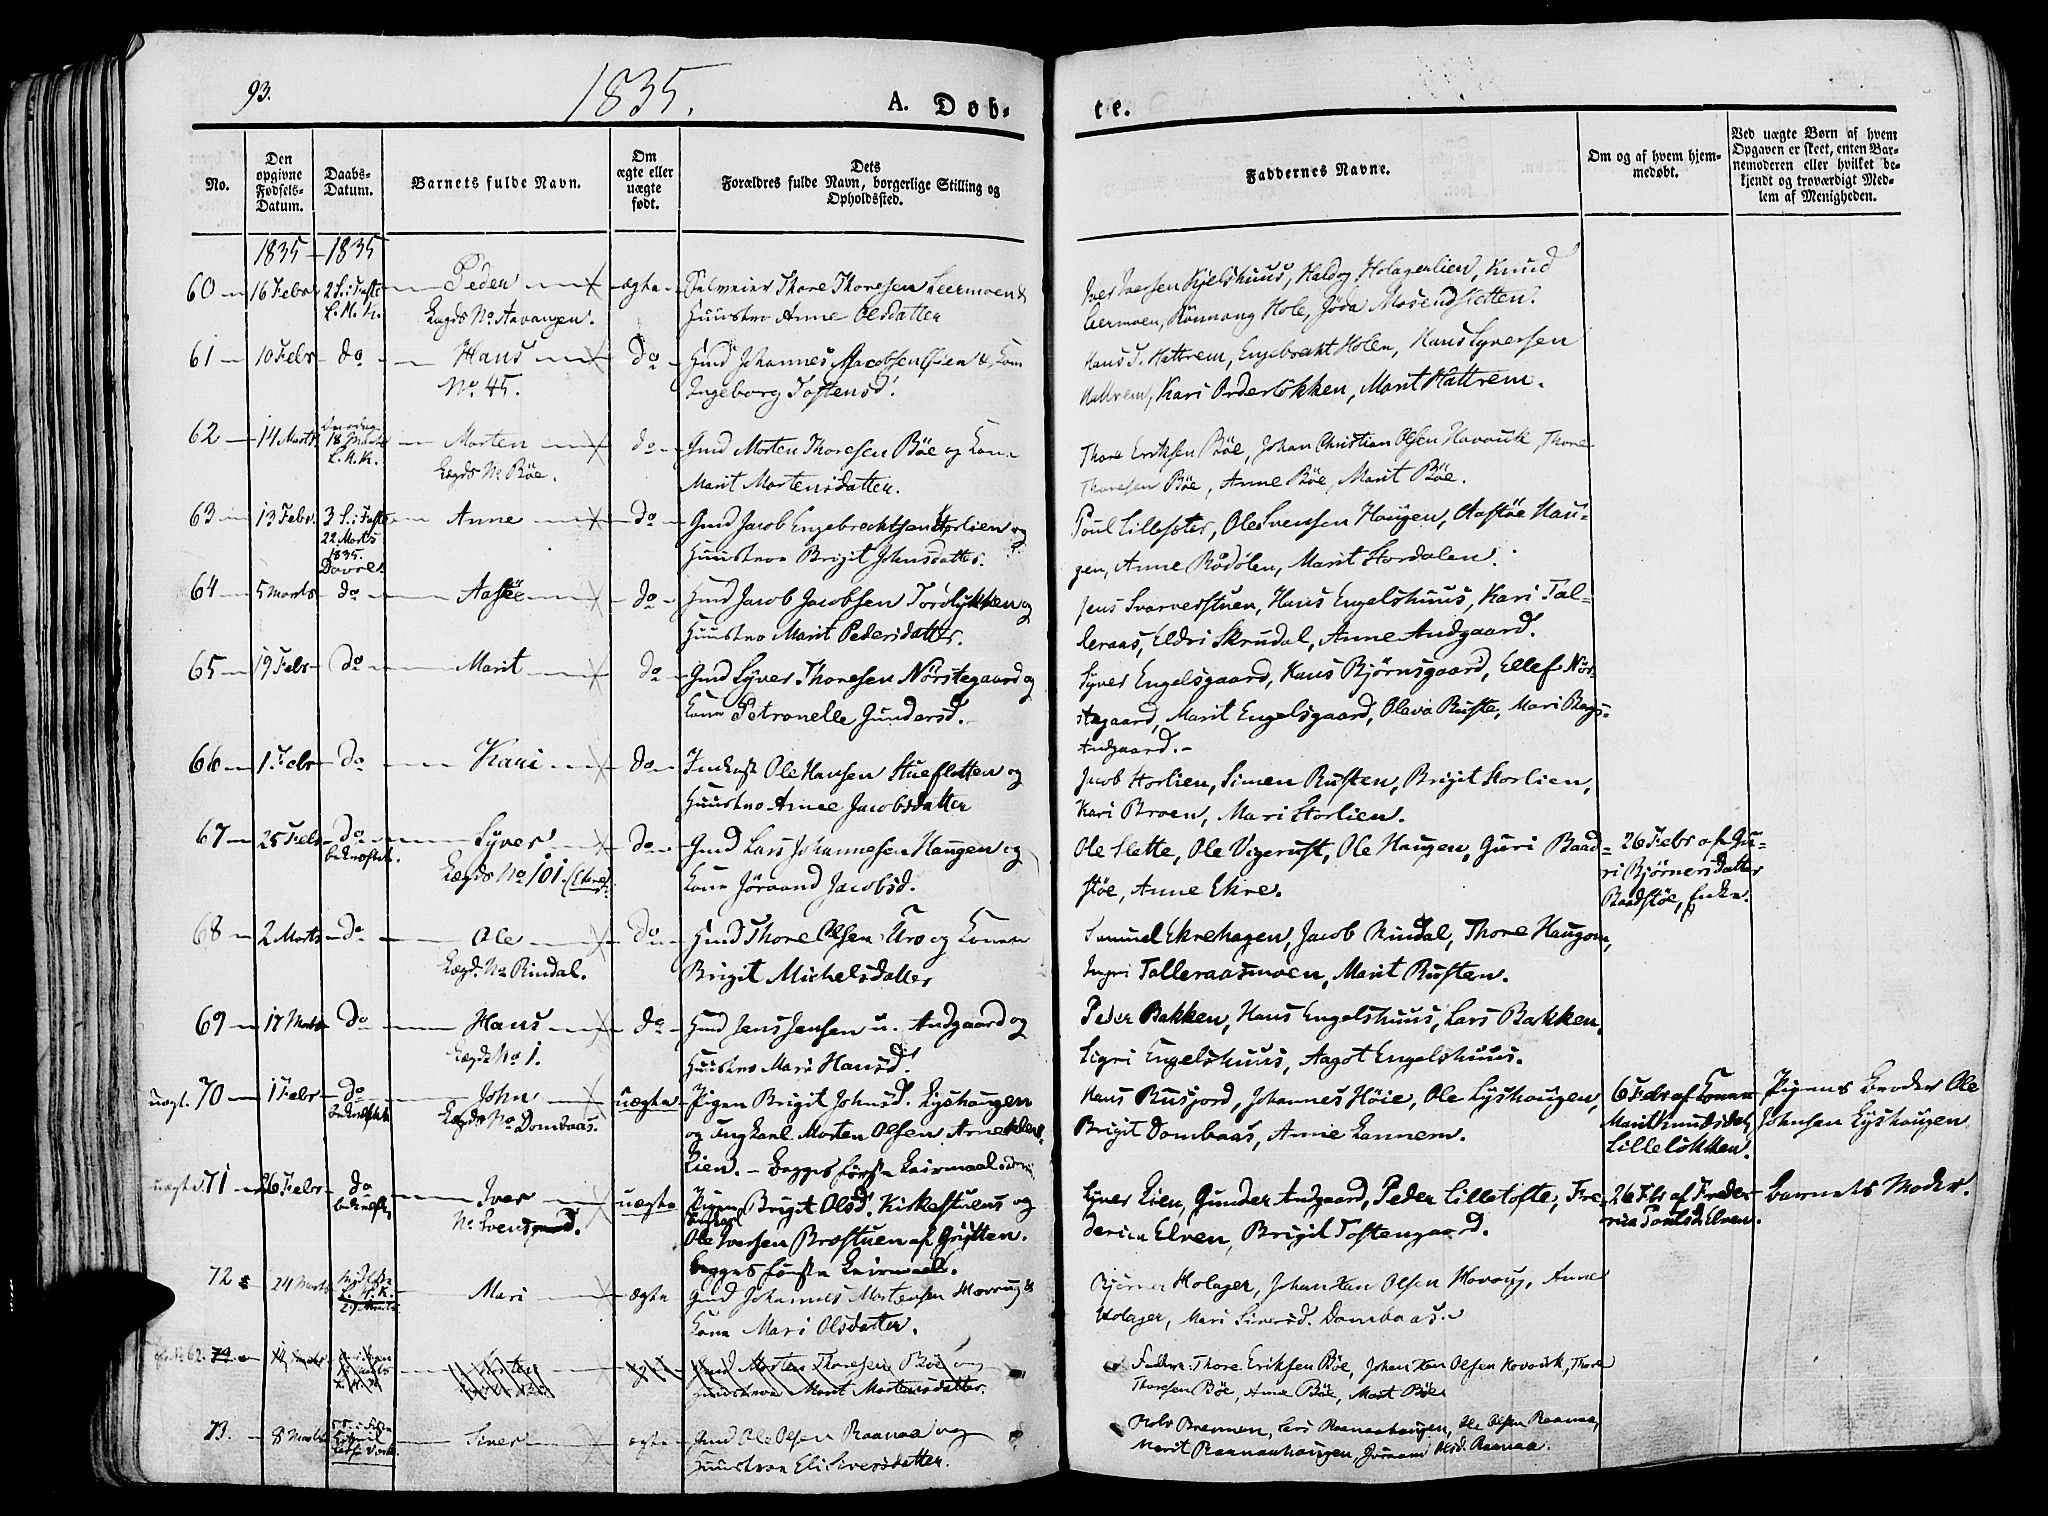 93.
1835.
A. Døb-
te.
No.
Den opgivne Fødsels-Datum.
Daabs-Datum.
Barnets fulde Navn.
Om ægte eller uægte født.
Dets Forældres fulde Navn, borgerlige Stilling og Opholdssted.
Faddernes Navne.
Om og af hvem hjem-medøbt.
Ved uægte Børn af hvem Opgaven er skeet, enten Bar-nemoderen eller hvilket be-kjendt og troværdigt Med-lem af Menigheden.
1835 - 1835
60 16 Febr 2 S. i Faste Peder ægte Thore Thoresen Leermoen &
L. K. K. Lægds No Aavangen. Huustro Anne Olsdatter
Iver Iversen Kjelshuus, Haldog Holagerlien, Knud
Leermoen, Rønnaug Hole, Jøda Mosendstetten.
61 10 Febr do Hans do Gmd Johannes Jacobsen Lien & Kone
No 45. Ingeborg Tostensd.
Hans J. Hattrem, Engebrecht Holen, Hans Syversen
Hattrem, Kari Orderløkken, Marit Hattrem.
62 14 Marts 18 Marts Morten do Gmd Morten Thoresen Bøe og Kone
L. K. K. Lægds No Bøe. Marit Mortensdatter.
Thore Eriksen Bøe, Johan Christian Olsen Hovouk, Thore
Thoresen Bøe, Anne Bøe, Marit Bøe.
63 13 Febr. 3 S. i Faste Anne do Gmd Jacob Engebrechtsen Storlien og
22 Marts 1835. Dovre. Huustroe Brigit Johnsdatter.
Poul Lillesæter, Ole Svensen Haugen, Aastøe Hau-
gen, Anne Rødølen, Marit Stordalen.
64 5 Marts do Aastøe do Hmd Jacob Jacobsen Tordlykken og
Huustro Marit Pedersdatter.
Jens Svarverstuen, Hans Engelshuus, Kari Tal-
leraas, Eldri Skrudal, Anne Andgaard.
65 19 Febr do Marit do Gmd Syver Thoresen Nørstegaard og
Kone Petronelle Gundersd.
Syver Engelsgaard, Hans Bjørnsgaard, Ellef Nør-
stegaard, Marit Engelsgaard, Olava Ruste, Mari Bags-
Andgaard.
66 1 Febr do Kari do Inderst Ole Hansen Stueflotten og
Huustro Anne Jacobsdatter
Jacob Storlien, Simen Rusten, Brigit Storlien,
Kari Broen, Mari Storlien.
67 25 Febr do Syver do Gmd Lars Johannesen Haugen og
bekræftet. Lægds No 101. (Ekre). Kone Jøraand Jacobsd.
Ole Slette, Ole Vigerust, Ole Haugen, Guri Baad-
støe, Anne Ekre.
26 Febr af Gu-
ri Bjørnersdatter
Baadstøe, Enke.
68 2 Marts do Ole do Hmd Thore Olsen Uro og Konen
Lægd No Rindal. Brigit Michelsdatter
Samuel Ekrehagen, Jacob Rindal, Thore Haugom,
Ingri Talleraasmoen, Marit Rusten.
69 17 Marts do Hans do Hmd Jens Jensen u. Andgaard og
Lægds No 1. Huustro Mari Hansd.
Peder Bakken, Hans Engelshuus, Lars Bakken,
Sigri Engelshuus, Aagot Engelshuus.
uægt. 70 1 Febr do John uægte Pigen Brigit Johnsd. Lyshaugen
bekræftet Lægds No Dombaas. og Ungkarl Morten Olsen Arnekleve-
lien. - Begges første Leiermaal
Hans Rusjord, Johannes Høie, Ole Lyshaugen,
Brigit Dombaas, Anne Lannem.
6 Febr af Konen
Marit Knudsdat.
Lilleløkken.
Pigens Broder Ole
Johnsen Lyshaugen
uægte 71 26 Febr do Iver uægte Pigen Brigit Olsd. Kirkestuens og
bekræft. Ole Iversen Brostuen af Grytten.
begges første Leiermaal.
Syver Lien, Gunder Andgaard, Peder Lilletofte, Fre-
derica Elven, Brigit Tostengaard.
26 Febr af Freder-
rica Poulsd. Elven.
Barnets Moder.
72 24 Marts L. K. K. 29 Marts Mari ægte Gmd Johannes Mortensen Hovoug &
Kone Mari Olsdatter.
Bjørner Holager, Johan Chri Olsen Hovoug, Anne
Holager, Mari Siversd. Dombaas.
No 62. 14 Marts Morten Gmd Morten Thoresen Bøe og
Huustroe Marit Mortensdatter.
Faddere Thore Eriksen Bøe, Johan Chr Olsen Hovouk, Thore
Thoresen Bøe, Anne Bøe, Marit Bøe
73. 8 Marts Siver ægte Gmd Ole Olsen Raanaa og
Huustroe Eli Siversdatter.
Holv Brennen, Lars Raanaahaugen, Ole Olsen Raanaa,
Marit Raanaahaugen, Jøraand Olsd. Raanaa.